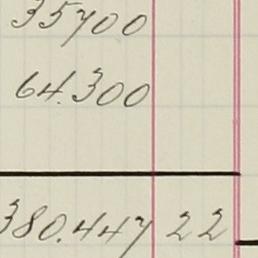 35700
64.300
380.447 22